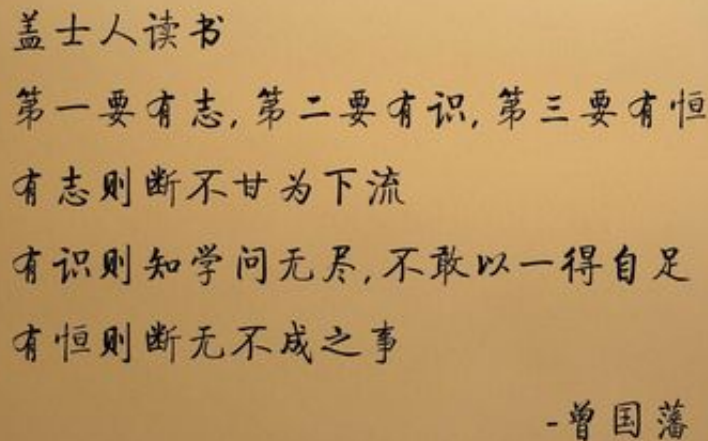 盖士人读书
第一要有志,第二要有识,第三要有恒
有志则断不甘为下流
有识则知学问无尽,不敢以一得自足
有恒则断无不成之事
-曾国藩